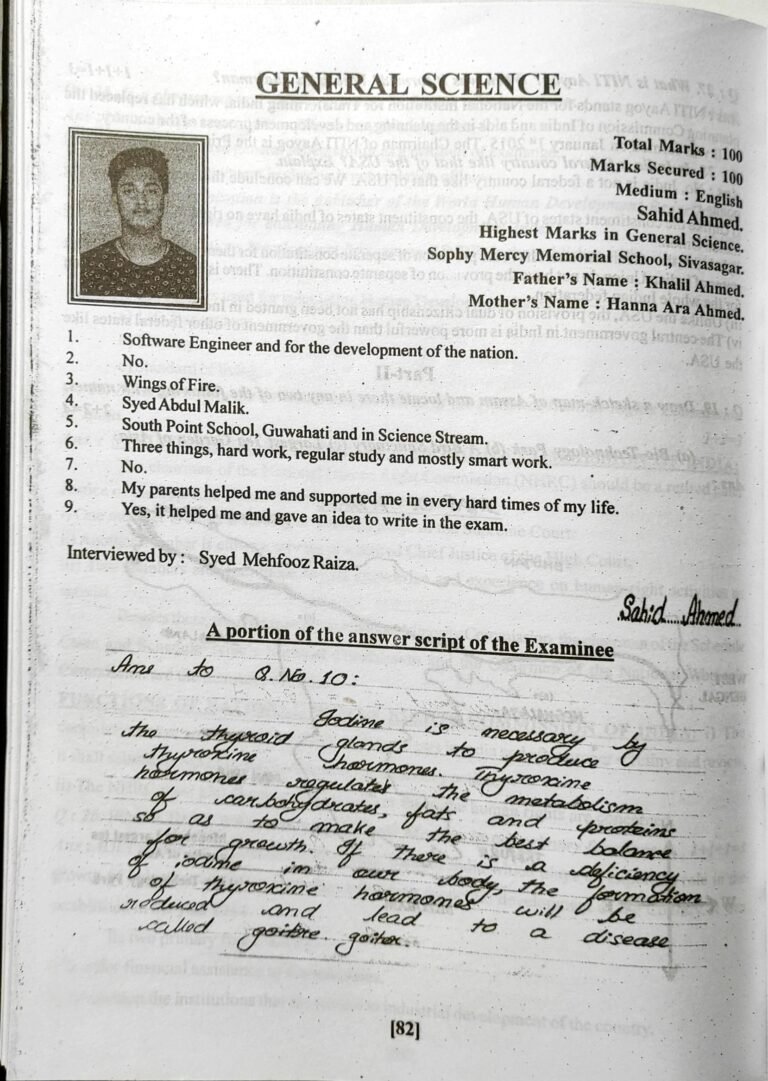 GENERAL SCIENCE
Total Marks : 100
Marks Secured : 100
Medium : English
Sahid Ahmed.
Highest Marks in General Science.
Sophy Mercy Memorial School, Sivasagar.
Father's Name : Khalil Ahmed.
Mother's Name : Hanna Ara Ahmed.
1. Software Engineer and for the development of the nation.
2. No.
3. Wings of Fire.
4. Syed Abdul Malik.
5. South Point School, Guwahati and in Science Stream.
6. Three things, hard work, regular study and mostly smart work.
7. No.
8. My parents helped me and supported me in every hard times of my life.
9. Yes, it helped me and gave an idea to write in the exam.
Interviewed by : Syed Mehfooz Raiza.
Sahid Ahmed
A portion of the answer script of the Examinee
Ans to Q. No. 10:
Iodine is necessary by
the thyroid glands to produce
thyroxine hormones. Thyroxine
hormones regulates the metabolism
of carbohydrates, fats and proteins
so as to make the best balance
for growth. If there is a deficiency
of iodine in our body, the formation
of thyroxine hormones will be
reduced and lead to a disease
called goitre goiter.
[82]